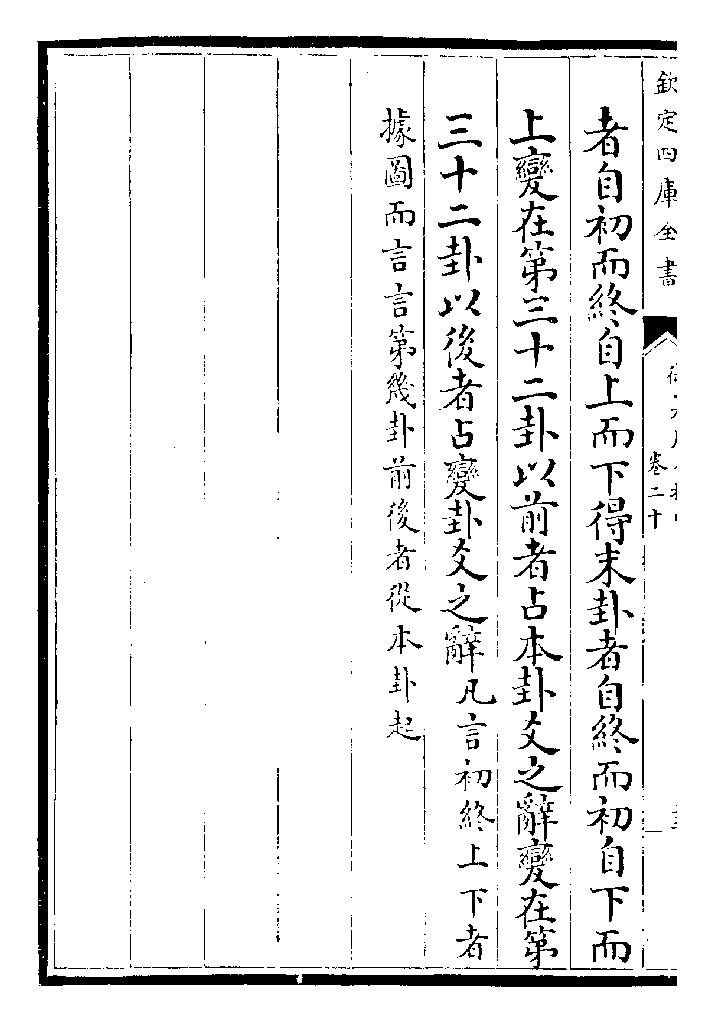 欽定四庫全書
卷二十
者自初而終自上而下得末卦者自終而初自下而
上變在第三十二卦以前者占本卦爻之辭變在第
三十二卦以後者占變卦爻之辭凡言初終上下者
據圖而言言第幾卦前後者從本卦起